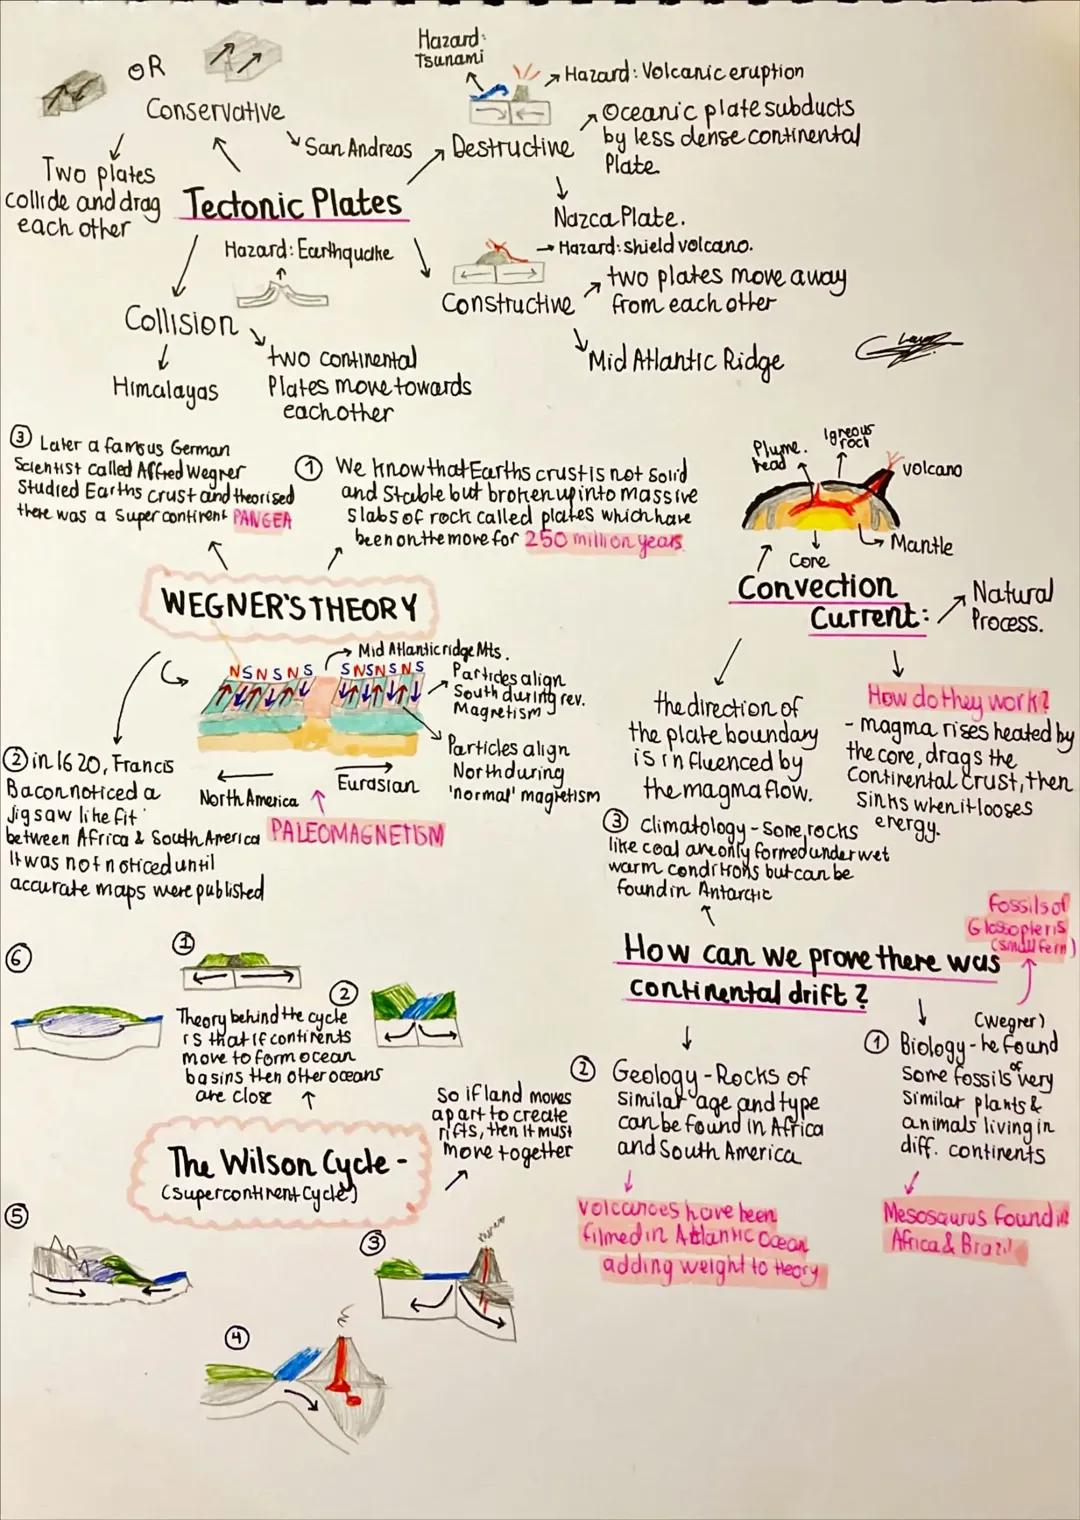 OR
Conservative
San Andreas
Two plates
collide and drag
each other
Tectonic Plates
Hazard:
Tsunami
Hazard: Volcanic eruption
Destructive
Oceanic plate subducts
by less dense continental
Plate.
Nazca Plate.
Hazard: Earthquake
Hazard: shield volcano.
Constructive
two plates move away
from each other
Mid Atlantic Ridge
Collision
Himalayas
two continental
Plates move towards
each other
③ Later a famous German
Scientist called Alfred Wegner
Studied Earths crust and theorised
there was a Super continent PANGEA
① We know that Earths crust is not solid
and stable but broken up into massive
slabs of rock called plates which have
been on the move for 250 million years
WEGNER'S THEORY
Mid Atlantic ridge Mts.
N S N S N S
S N S N S N S
Particles align
South during rev.
Magnetism
Particles align
North during
'normal' magnetism
North America
Eurasian
PALEOMAGNETISM
② in 1620, Francis
Bacon noticed a
jigsaw like fit
between Africa & South America
It was not noticed until
accurate maps were published
Plume.
head
Igneous
rock
volcano
Mantle
Core
Convection
Current:
Natural
Process.
the direction of
the plate boundary
is influenced by
the magma flow.
How do they work?
- magma rises heated by
the core, drags the
Continental Crust, then
Sinks when it looses
energy.
③ Climatology - Some rocks
like coal are only formed under wet
warm conditions but can be
found in Antarctic
How can we prove there was
continental drift?
Fossils of
Glossopteris
(small fern)
(Wegner)
① Biology - he found
some fossils of very
similar plants &
animals living in
diff. continents
Mesosaurus found in
Africa & Brazil
② Geology - Rocks of
Similar age and type
can be found in Africa
and South America
volcanoes have been
filmed in Atlantic Ocean
adding weight to theory
①
②
Theory behind the cycle
is that if continents
move to form ocean
basins then other oceans
are close
So if land moves
apart to create
rifts, then it must
move together
The Wilson Cycle -
(supercontinent Cycle)
③
④
⑤
⑥